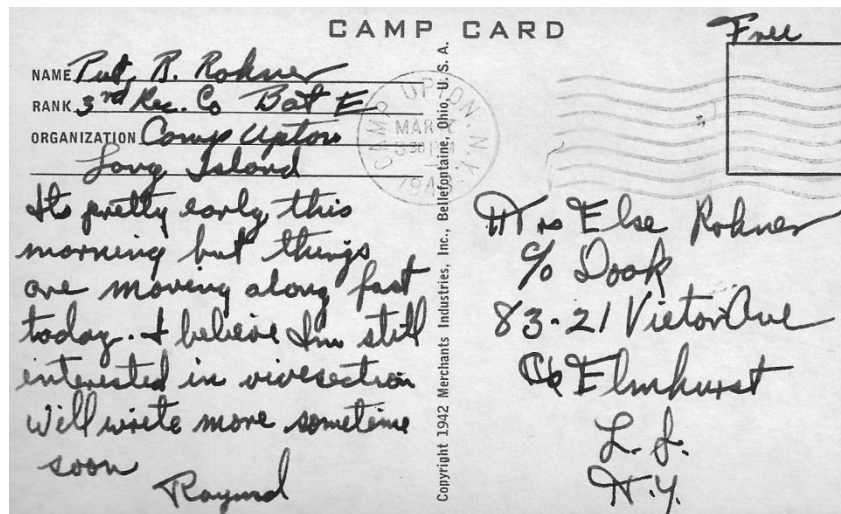 CAMP CARD
Free
NAME Pvt. R. Rohner
RANK 3rd Rec. Co Bat E
ORGANIZATION Camp Upton
Long Island
Its pretty early this
morning but things
are moving along fast
today. I believe Im still
interested in vivesection
Will write more sometime
soon
Raymd
Copyright 1942 Merchants Industries, Inc., Bellefontaine, Ohio, U. S. A.
CAMP UPTON, N.Y.
MAR
1943
Mrs Else Rohner
c/o Dook
83-21 Victor Ave
Elmhurst
L. I.
N.Y.